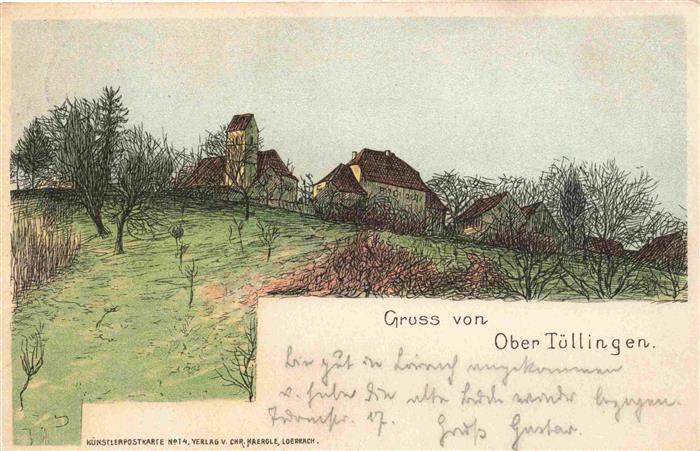 Gruss von
Ober Tüllingen.
Bin gut in Lörrach angekommen
u. habe die alte Bude wieder bezogen.
17. Gruß Gustav.
KÜNSTLERPOSTKARTE No 14. VERLAG V. CHR. HAEROLE, LOERRACH.